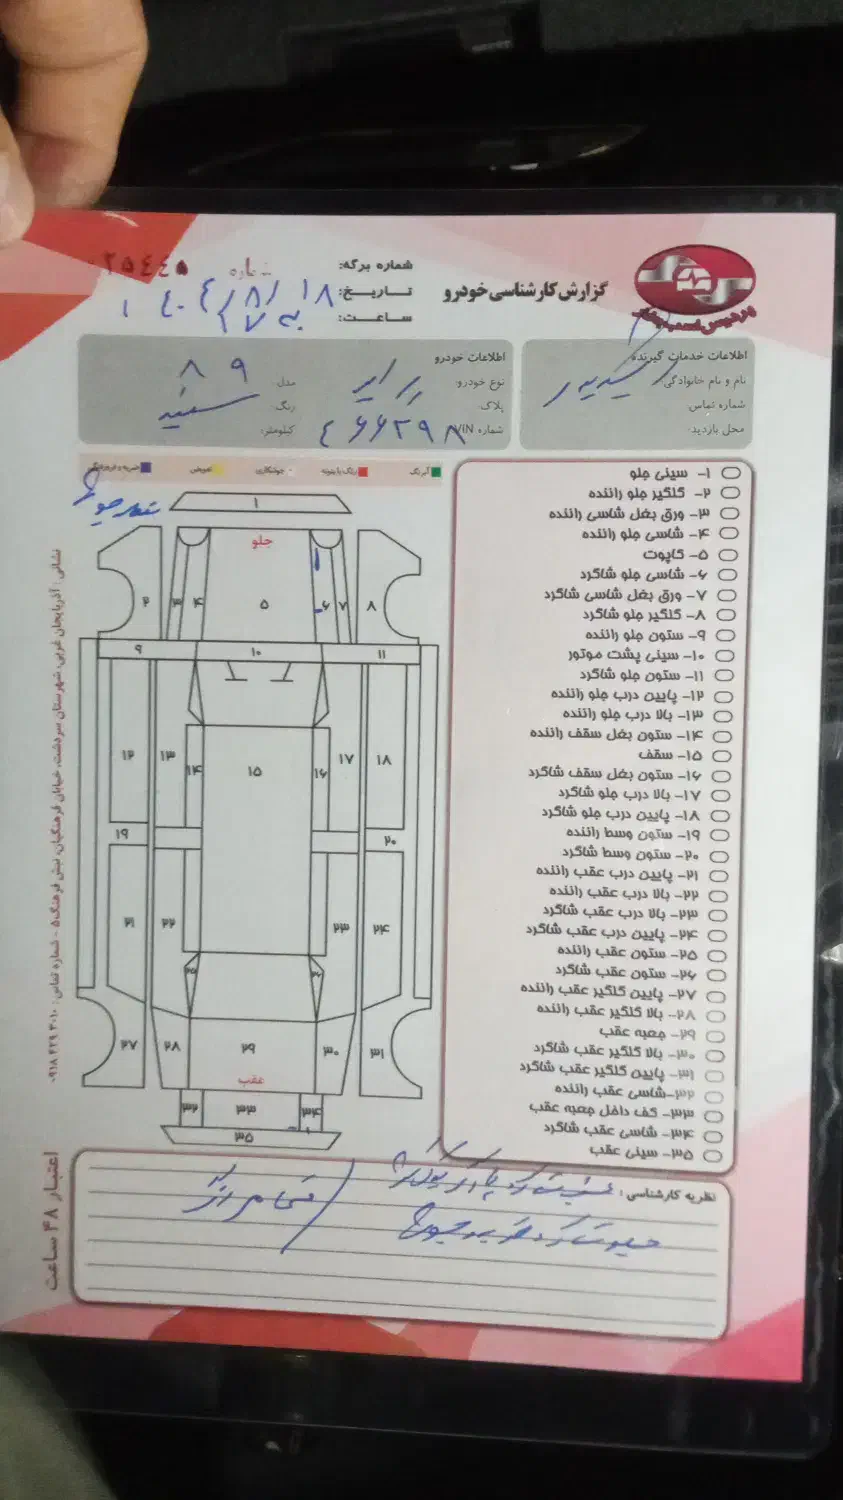 شماره برگه: شماره ۲۵۴۴۵
گزارش کارشناسی خودرو
تاریخ: ۱۴۰۴/۸/۱۸
ساعت: ۱۷
پردیس اسب بخار
اطلاعات خدمات گیرنده
نام و نام خانوادگی:
شماره تماس:
محل بازدید:
اطلاعات خودرو
نوع خودرو: پراید
مدل ۸۹
پلاک:
رنگ: سفید
شماره VIN: ۴۶۶۲۹۸
کیلومتر:
آبرنگ
رنگ یا بتونه
جوشکاری
تعویض
ضربه و فرورفتگی
۱- سینی جلو
۲- گلگیر جلو راننده
۳- ورق بغل شاسی راننده
۴- شاسی جلو راننده
۵- کاپوت
۶- شاسی جلو شاگرد
۷- ورق بغل شاسی شاگرد
۸- گلگیر جلو شاگرد
۹- ستون جلو راننده
۱۰- سینی پشت موتور
۱۱- ستون جلو شاگرد
۱۲- پایین درب جلو راننده
۱۳- بالا درب جلو راننده
۱۴- ستون بغل سقف راننده
۱۵- سقف
۱۶- ستون بغل سقف شاگرد
۱۷- بالا درب جلو شاگرد
۱۸- پایین درب جلو شاگرد
۱۹- ستون وسط راننده
۲۰- ستون وسط شاگرد
۲۱- پایین درب عقب راننده
۲۲- بالا درب عقب راننده
۲۳- بالا درب عقب شاگرد
۲۴- پایین درب عقب شاگرد
۲۵- ستون عقب راننده
۲۶- ستون عقب شاگرد
۲۷- پایین گلگیر عقب راننده
۲۸- بالا گلگیر عقب راننده
۲۹- جعبه عقب
۳۰- بالا گلگیر عقب شاگرد
۳۱- پایین گلگیر عقب شاگرد
۳۲- شاسی عقب راننده
۳۳- کف داخل جعبه عقب
۳۴- شاسی عقب شاگرد
۳۵- سینی عقب
۱
جلو
۲ ۳ ۴ ۵ ۶ ۷ ۸
۹ ۱۰ ۱۱
۱۲ ۱۳ ۱۴ ۱۵ ۱۶ ۱۷ ۱۸
۱۹ ۲۰
۲۱ ۲۲ ۲۳ ۲۴
۲۵ ۲۶
۲۷ ۲۸ ۲۹ ۳۰ ۳۱
عقب
۳۲ ۳۳ ۳۴
۳۵
نظریه کارشناسی:
تمام رنگ
نشانی: آذربایجان غربی، شهرستان سردشت، خیابان فرهنگیان، نبش فرهنگ ۵ - شماره تماس: ۰۹۱۸۴۲۹۳۰۱۰
اعتبار ۴۸ ساعت